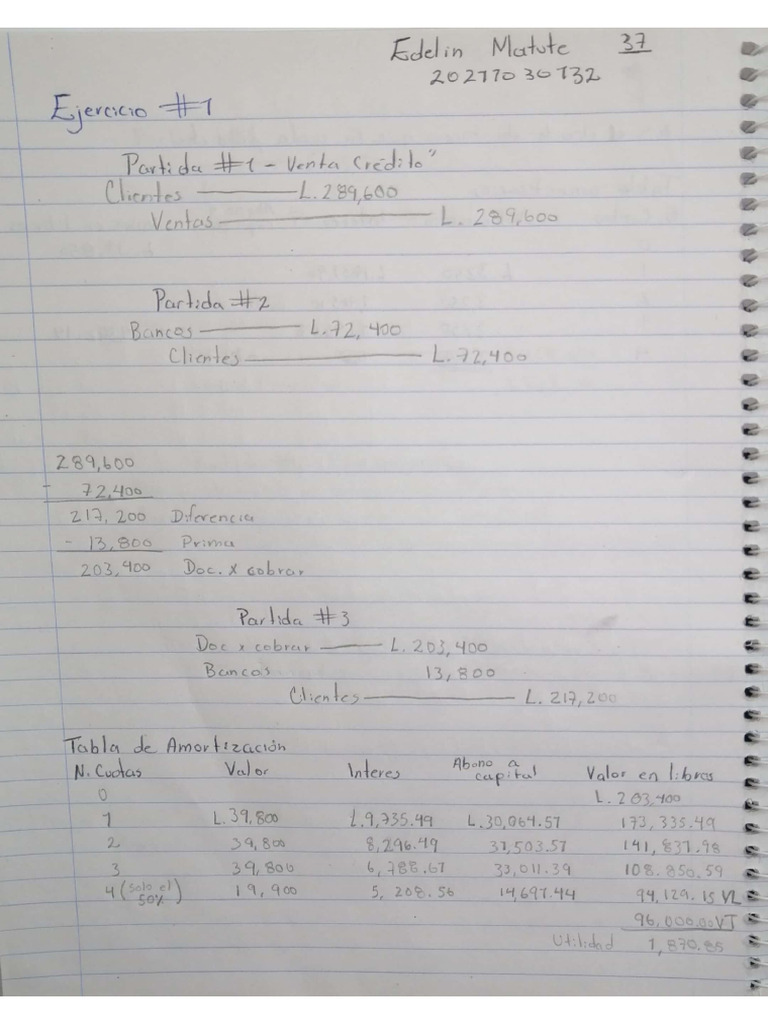 Edelin Matute 37
20211030132
Ejercicio #1
Partida #1 - Venta Crédito"
Clientes L. 289,600
Ventas L. 289,600
Partida #2
Bancos L. 72,400
Clientes L. 72,400
289,600
- 72,400
217,200 Diferencia
- 13,800 Prima
203,400 Doc. x cobrar
Partida #3
Doc x cobrar L. 203,400
Bancos 13,800
Clientes L. 217,200
Tabla de Amortización
N. Cuotas Valor Interes Abono a capital Valor en libros
0 L. 203,400
1 L. 39,800 L. 9,735.49 L. 30,064.51 173,335.49
2 39,800 8,296.49 31,503.51 141,831.98
3 39,800 6,788.61 33,011.39 108.850.59
4 (solo el 50%) 19,900 5,208.56 14,691.44 94,129.15 VL
96,000.00 VJ
Utilidad 1,870.85